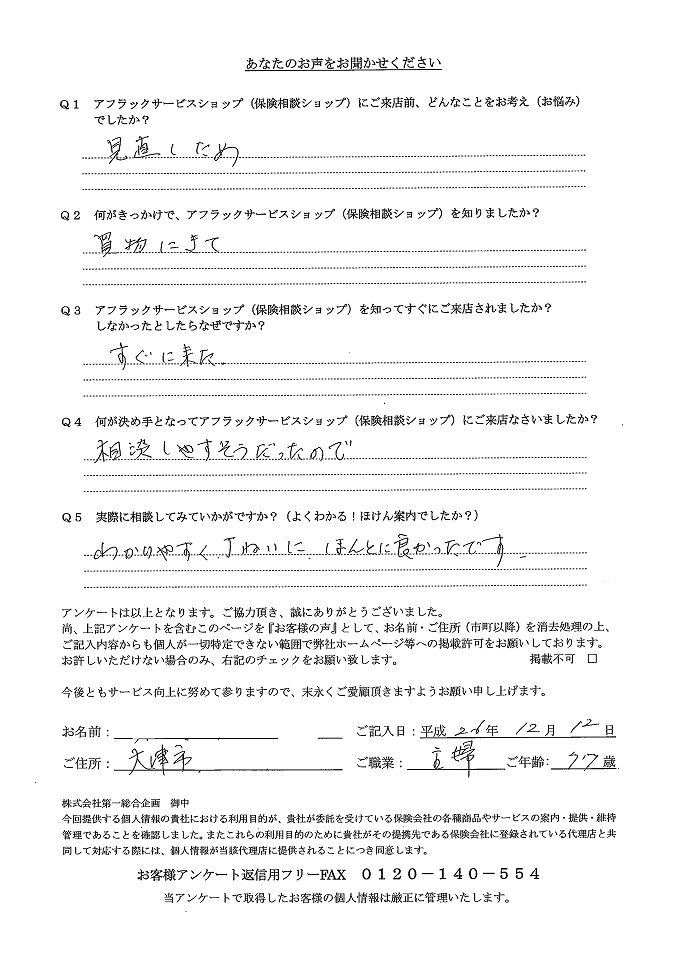 あなたのお声をお聞かせください
Q1 アフラックサービスショップ(保険相談ショップ)にご来店前、どんなことをお考え(お悩み)
でしたか?
見直しため
Q2 何がきっかけで、アフラックサービスショップ(保険相談ショップ)を知りましたか?
買物にきて
Q3 アフラックサービスショップ(保険相談ショップ)を知ってすぐにご来店されましたか?
しなかったとしたらなぜですか?
すぐに来た。
Q4 何が決め手となってアフラックサービスショップ(保険相談ショップ)にご来店なさいましたか?
相談しやすそうだったので
Q5 実際に相談してみていかがですか?(よくわかる!ほけん案内でしたか?)
わかりやすく、丁ねいに、ほんとに良かったです。
アンケートは以上となります。ご協力頂き、誠にありがとうございました。
尚、上記アンケートを含むこのページを『お客様の声』として、お名前・ご住所(市町以降)を消去処理の上、
ご記入内容からも個人が一切特定できない範囲で弊社ホームページ等への掲載許可をお願いしております。
お許しいただけない場合のみ、右記のチェックをお願い致します。 掲載不可 □
今後ともサービス向上に努めて参りますので、末永くご愛顧頂きますようお願い申し上げます。
お名前: ご記入日:平成 26年 12月 12日
ご住所: 大津市 ご職業: 主婦 ご年齢: 77歳
株式会社第一総合企画 御中
今回提供する個人情報の貴社における利用目的が、貴社が委託を受けている保険会社の各種商品やサービスの案内・提供・維持
管理であることを確認しました。またこれらの利用目的のために貴社がその提携先である保険会社に登録されている代理店と共
同して対応する際には、個人情報が当該代理店に提供されることにつき同意します。
お客様アンケート返信用フリーFAX 0120-140-554
当アンケートで取得したお客様の個人情報は厳正に管理いたします。